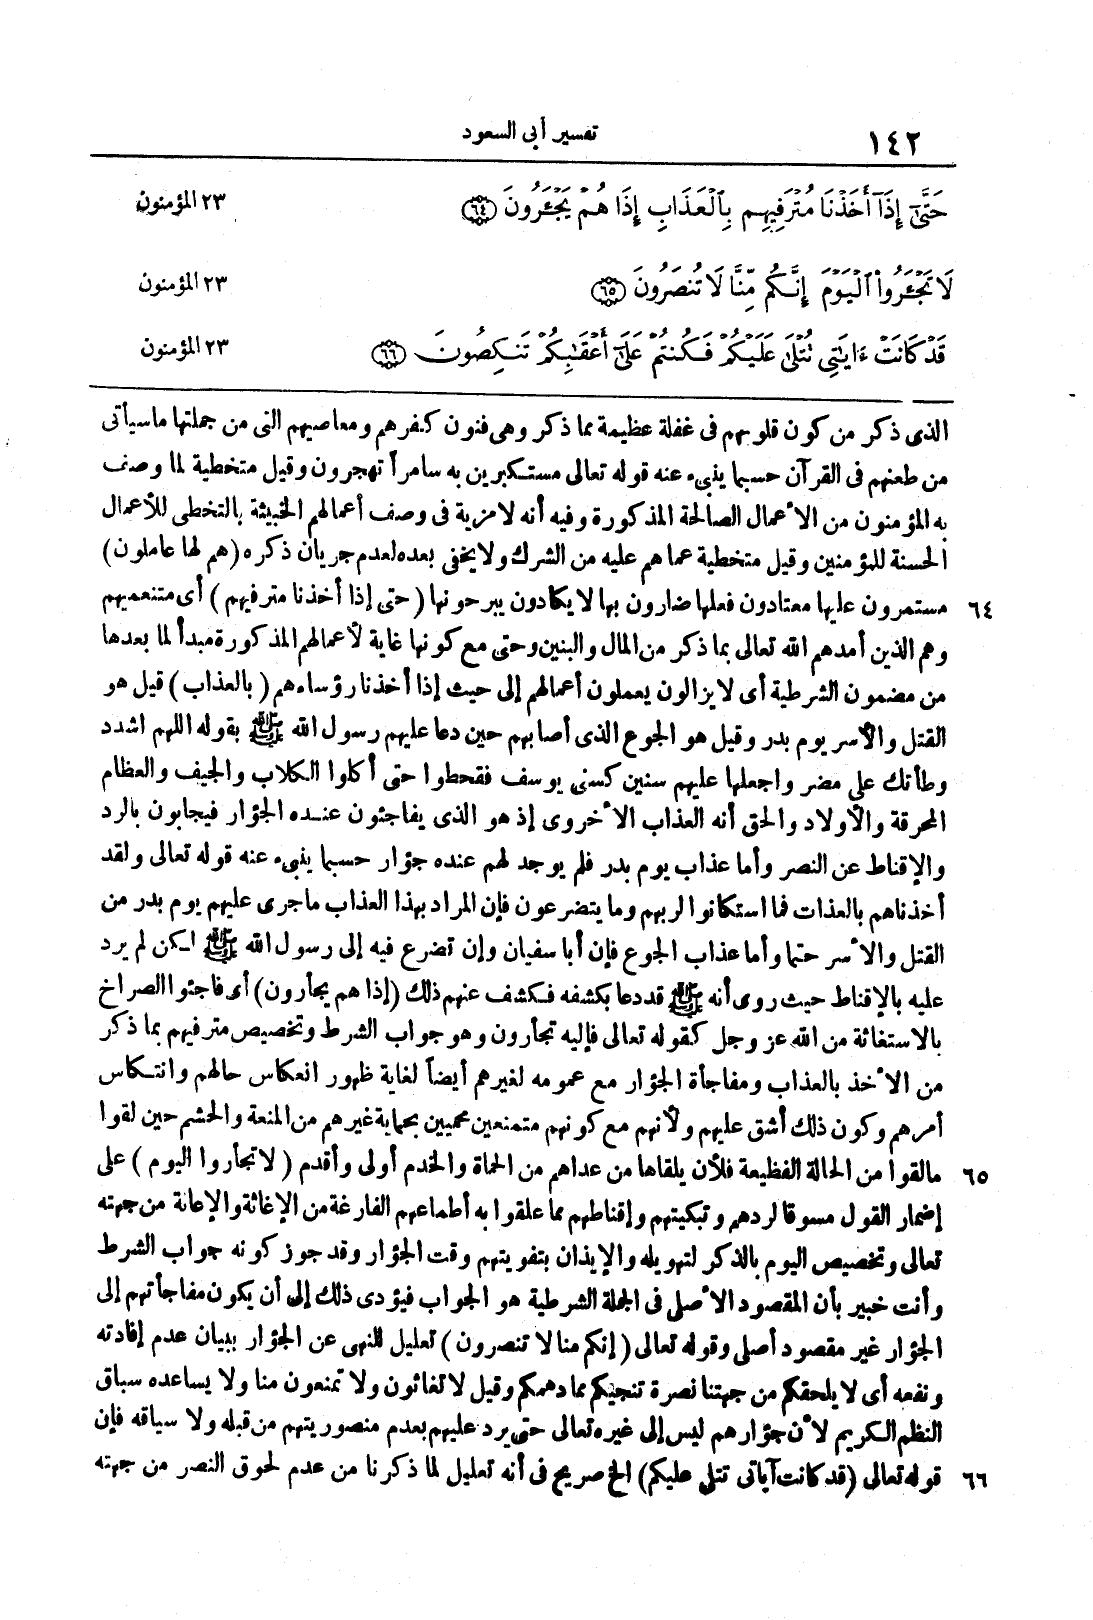 ١٤٢
تفسير أبى السعود
حَتَّىٰٓ إِذَآ أَخَذْنَا مُتْرَفِيهِم بِٱلْعَذَابِ إِذَا هُمْ يَجْـَٔرُونَ ﴿٦٤﴾ ٢٣ المؤمنون
لَا تَجْـَٔرُوا۟ ٱلْيَوْمَ إِنَّكُم مِّنَّا لَا تُنصَرُونَ ﴿٦٥﴾ ٢٣ المؤمنون
قَدْ كَانَتْ ءَايَـٰتِى تُتْلَىٰ عَلَيْكُمْ فَكُنتُمْ عَلَىٰٓ أَعْقَـٰبِكُمْ تَنكِصُونَ ﴿٦٦﴾ ٢٣ المؤمنون
الذى ذكر من كون قلوبهم فى غفلة عظيمة مما ذكر وهى فنون كفرهم ومعاصيهم التى من جملتها ماسيأتى
من طعنهم فى القرآن حسبما ينبىء عنه قوله تعالى مستكبرين به سامراً تهجرون وقيل متخطية لما وصف
به المؤمنون من الأعمال الصالحة المذكورة وفيه أنه لا مزية فى وصف أعمالهم الخبيثة بالتخطى للأعمال
الحسنة للمؤمنين وقيل متخطية عما هم عليه من الشرك ولا يخفى بعده لعدم جريان ذكره (هم لها عاملون)
٦٤ مستمرون عليها معتادون فعلها ضارون بها لا يكادون يبرحونها (حتى إذا أخذنا مترفيهم) أى متنعميهم
وهم الذين أمدهم الله تعالى بما ذكر من المال والبنين وحتى مع كونها غاية لأعمالهم المذكورة مبدأ لما بعدها
من مضمون الشرطية أى لا يزالون يعملون أعمالهم إلى حيث إذا أخذنا رؤساءهم (بالعذاب) قيل هو
القتل والأسر يوم بدر وقيل هو الجوع الذى أصابهم حين دعا عليهم رسول الله ﷺ بقوله اللهم اشدد
وطأتك على مضر واجعلها عليهم سنين كسنى يوسف فقحطوا حتى أكلوا الكلاب والجيف والعظام
المحرقة والأولاد والحق أنه العذاب الأخروى إذ هو الذى يفاجئون عنده الجؤار فيجابون بالرد
والإقناط عن النصر وأما عذاب يوم بدر فلم يوجد لهم عنده جؤار حسبما ينبىء عنه قوله تعالى ولقد
أخذناهم بالعذات فما استكانوا لربهم وما يتضرعون فإن المراد بهذا العذاب ماجرى عليهم يوم بدر من
القتل والأسر حتما وأما عذاب الجوع فإن أبا سفيان وإن تضرع فيه إلى رسول الله ﷺ لكن لم يرد
عليه بالإقناط حيث روى أنه ﷺ قد دعا بكشفه فكشف عنهم ذلك (إذا هم يجأرون) أى فاجئوا الصراخ
بالاستغاثة من الله عز وجل كقوله تعالى فإليه تجأرون وهو جواب الشرط وتخصيص مترفيهم بما ذكر
من الأخذ بالعذاب ومفاجأة الجؤار مع عمومه لغيرهم أيضاً لغاية ظهور انعكاس حالهم وانتكاس
أمرهم وكون ذلك أشق عليهم ولأنهم مع كونهم متمنعين محميين بحماية غيرهم من المنعة والحشم حين لقوا
٦٥ مالقوا من الحالة الفظيعة فلأن يلقاها من عداهم من الحماة والخدم أولى وأقدم (لا تجأروا اليوم) على
إضمار القول مسوقا لردهم وتبكيتهم وإقناطهم مما علقوا به أطماعهم الفارغة من الإغاثة والإعانة من جهته
تعالى وتخصيص اليوم بالذكر لتهويله والإيذان بتفويتهم وقت الجؤار وقد جوز كونه جواب الشرط
وأنت خبير بأن المقصود الأصلى فى الجملة الشرطية هو الجواب فيؤدى ذلك إلى أن يكون مفاجأتهم إلى
الجؤار غير مقصود أصلى وقوله تعالى (إنكم منا لا تنصرون) تعليل للنهى عن الجؤار ببيان عدم إفادته
ونفعه أى لا يلحقكم من جهتنا نصرة تنجيكم مما دهمكم وقيل لا تغاثون ولا تمنعون منا ولا يساعده سباق
النظم الكريم لأن جؤارهم ليس إلى غيره تعالى حتى يرد عليهم بعدم منصوريتهم من قبله ولا سياقه فإن
٦٦ قوله تعالى (قد كانت آياتى تتلى عليكم) الخ صريح فى أنه تعليل لما ذكرنا من عدم لحوق النصر من جهته